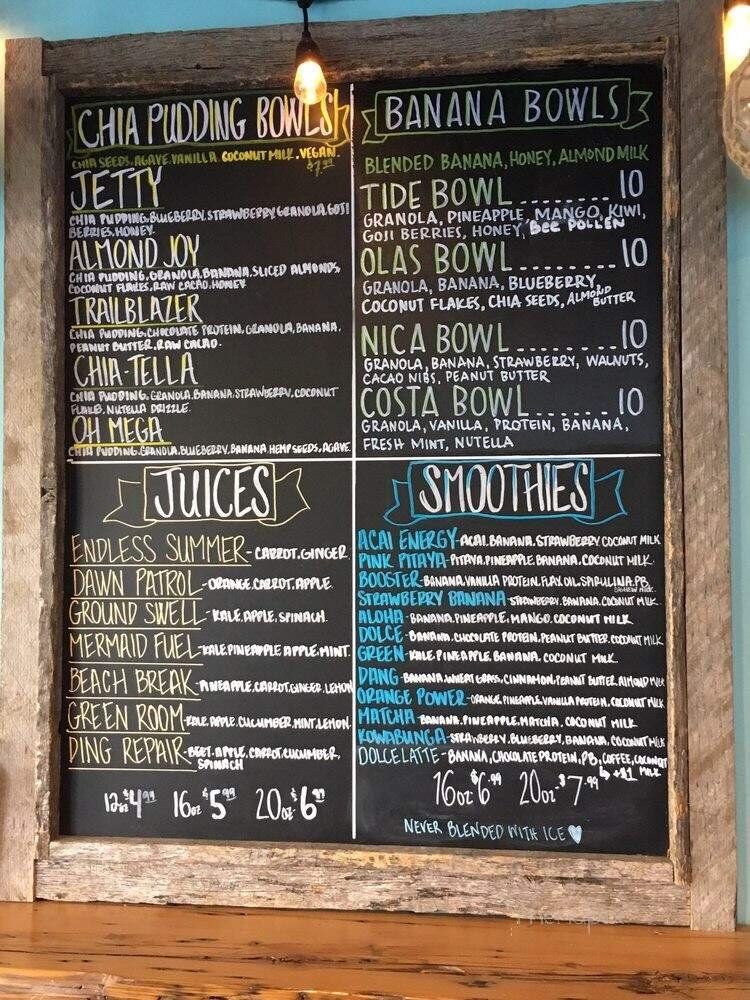 CHIA PUDDING BOWLS!
CHIA SEEDS, AGAVE, VANILLA, COCONUT MILK. VEGAN.
$7.99
JETTY
CHIA PUDDING, BLUEBERRY, STRAWBERRY, GRANOLA, GOJI
BERRIES, HONEY
ALMOND JOY
CHIA PUDDING, GRANOLA, BANANA, SLICED ALMONDS,
COCONUT FLAKES, RAW CACAO, HONEY
TRAILBLAZER
CHIA PUDDING, CHOCOLATE PROTEIN, GRANOLA, BANANA,
PEANUT BUTTER, RAW CACAO.
CHIA-TELLA
CHIA PUDDING, GRANOLA, BANANA, STRAWBERRY, COCONUT
FLAKES, NUTELLA DRIZZLE
OH MEGA
CHIA PUDDING, GRANOLA, BLUEBERRY, BANANA, HEMP SEEDS, AGAVE
BANANA BOWLS
BLENDED BANANA, HONEY, ALMOND MILK
TIDE BOWL........10
GRANOLA, PINEAPPLE, MANGO, KIWI,
GOJI BERRIES, HONEY, BEE POLLEN
OLAS BOWL........10
GRANOLA, BANANA, BLUEBERRY,
COCONUT FLAKES, CHIA SEEDS, ALMOND
BUTTER
NICA BOWL........10
GRANOLA, BANANA, STRAWBERRY, WALNUTS,
CACAO NIBS, PEANUT BUTTER
COSTA BOWL.......10
GRANOLA, VANILLA, PROTEIN, BANANA,
FRESH MINT, NUTELLA
JUICES
ENDLESS SUMMER-CARROT, GINGER
DAWN PATROL-ORANGE, CARROT, APPLE
GROUND SWELL-KALE, APPLE, SPINACH
MERMAID FUEL-KALE, PINEAPPLE, APPLE, MINT
BEACH BREAK-PINEAPPLE, CARROT, GINGER, LEMON
GREEN ROOM-KALE, APPLE, CUCUMBER, MINT, LEMON
DING REPAIR-BEET, APPLE, CARROT, CUCUMBER,
SPINACH
12oz $4.99 16oz $5.99 20oz $6.99
SMOOTHIES
ACAI ENERGY-ACAI, BANANA, STRAWBERRY, COCONUT MILK
PINK PITAYA-PITAYA, PINEAPPLE, BANANA, COCONUT MILK
BOOSTER-BANANA, VANILLA PROTEIN, FLAX OIL, SPIRULINA, PB,
MILK
STRAWBERRY BANANA-STRAWBERRY, BANANA, COCONUT MILK
ALOHA-BANANA, PINEAPPLE, MANGO, COCONUT MILK
DOLCE-BANANA, CHOCOLATE PROTEIN, PEANUT BUTTER, COCONUT MILK
GREEN-KALE, PINEAPPLE, BANANA, COCONUT MILK
DANG-BANANA, WHEAT GRASS, CINNAMON, PEANUT BUTTER, ALMOND MILK
ORANGE POWER-ORANGE, PINEAPPLE, VANILLA PROTEIN, COCONUT MILK
MATCHA-BANANA, PINEAPPLE, MATCHA, COCONUT MILK
KOWABUNGA-STRAWBERRY, BLUEBERRY, BANANA, COCONUT MILK
DOLCE LATTE-BANANA, CHOCOLATE PROTEIN, PB, COFFEE, COCONUT
MILK
↳ +$1
16oz $6.99 20oz $7.99
NEVER BLENDED WITH ICE ♥